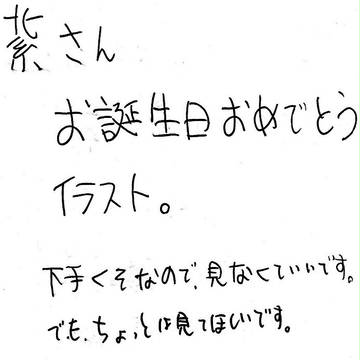 紫さん
お誕生日おめでとう
イラスト。
下手くそなので、見なくていいです。
でも、ちょっとは見てほしいです。